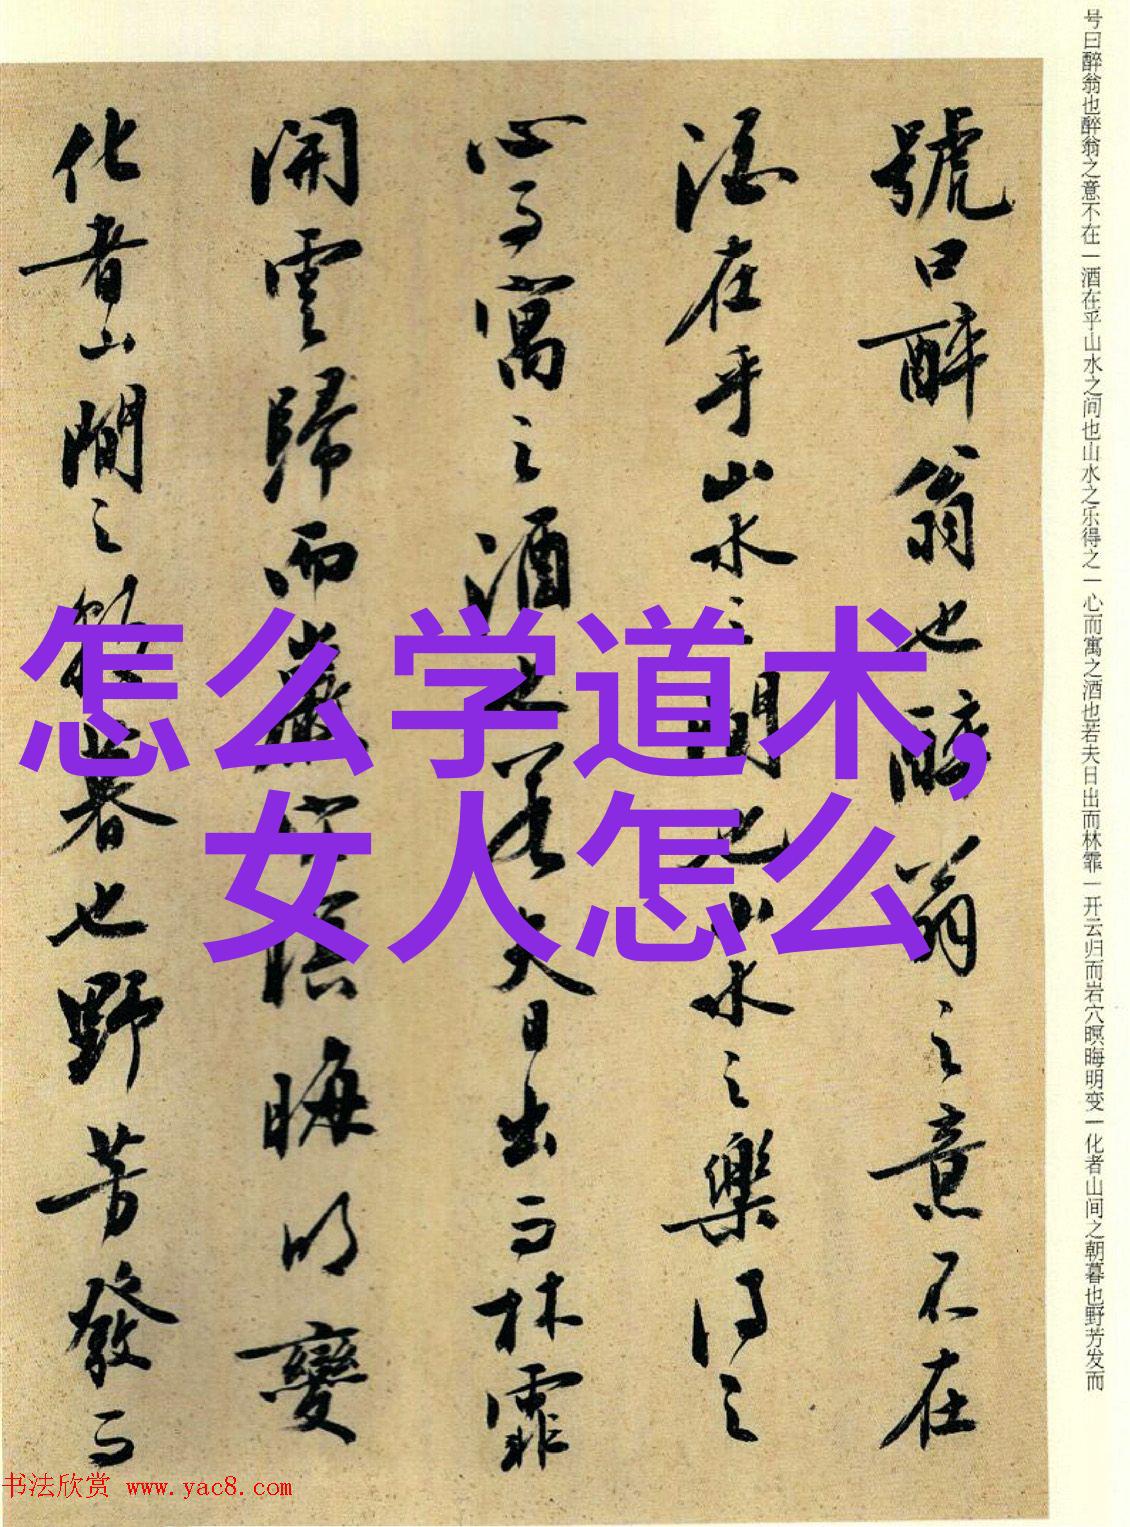 号曰醉翁也醉翁之意不在一酒在乎山水之间也山水之乐得之一心而寓之酒也若夫日出而林霏一开云归而岩穴暝晦明变一化者山间之朝暮也野芳发而
號曰醉翁也醉翁之意不在
酒在乎山水之間也山水之樂得之
心而寓之酒也若夫日出而林霏
開雲歸而巖穴暝晦明變
化者山間之朝暮也野芳發而
怎么学道术,
女人怎么
书法欣赏 www.yac8.com